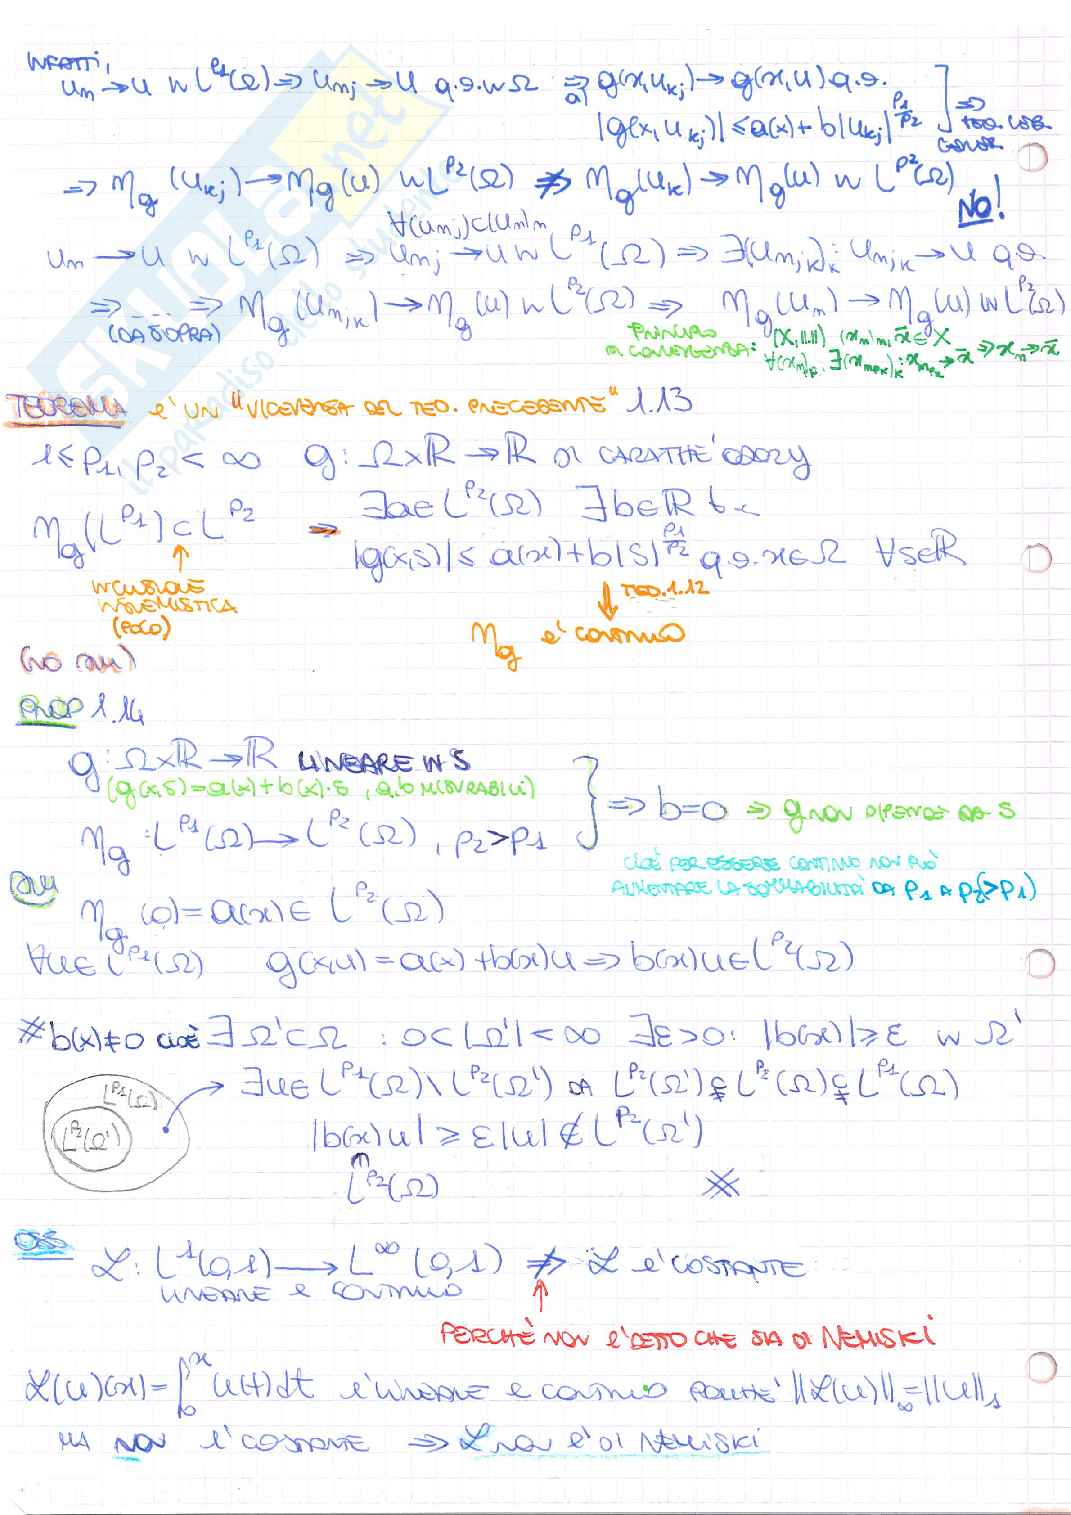 INFATTI,
u_n → u in L^{p1}(Ω) ⇒ u_{nj} → u q.o. in Ω ⇒ a) g(x,u_{kj}) → g(x,u) q.o.
|g(x,u_{kj})| ≤ a(x) + b|u_{kj}|^{p1/p2} ⇒ TEO. LEB. GENER.
⇒ η_g(u_{kj}) → η_g(u) in L^{p2}(Ω) ⇏ η_g(u_k) → η_g(u) in L^{p2}(Ω) NO!
∀(u_{nj}) ⊂ (u_n)_n
u_n → u in L^{p1}(Ω) ⇒ u_{nj} → u in L^{p1}(Ω) ⇒ ∃(u_{njk})_k : u_{njk} → u q.o.
⇒ .... ⇒ η_g(u_{n,k}) → η_g(u) in L^{p2}(Ω) ⇒ η_g(u_n) → η_g(u) in L^{p2}(Ω)
(DA SOPRA)
PRINCIPIO DI CONVERGENZA: (X, ||.||) (x_n)_n, x̄ ∈ X
∀(x_{np})_p, ∃(x_{npk})_k : x_{npk} → x̄ ⇒ x_n → x̄
TEOREMA è UN "VICEVERSA DEL TEO. PRECEDENTE" 1.13
1 ≤ p1, p2 < ∞ g: Ω×ℝ → ℝ DI CARATHÉODORY
η_g(L^{p1}) ⊂ L^{p2} ⇒ ∃a ∈ L^{p2}(Ω) ∃b ∈ ℝ t.c.
|g(x,s)| ≤ a(x) + b|s|^{p1/p2} q.o. x ∈ Ω ∀s ∈ ℝ
INCLUSIONE
INSIEMISTICA
(POCO)
⇓ TEO. 1.12
η_g è CONTINUO
(NO DIM)
PROP 1.14
g: Ω×ℝ → ℝ LINEARE IN S
(g(x,s) = a(x) + b(x)·s, a,b MISURABILI)
η_g : L^{p1}(Ω) → L^{p2}(Ω), p2 > p1
⇒ b = 0 ⇒ g NON DIPENDE DA S
CIOÈ PER ESSERE CONTINUO NON PUÒ
AUMENTARE LA SOMMABILITÀ DA p1 A p2 (> p1)
DIM
η_g(0) = a(x) ∈ L^{p2}(Ω)
∀u ∈ L^{p1}(Ω) g(x,u) = a(x) + b(x)u ⇒ b(x)u ∈ L^{p2}(Ω)
※ b(x) ≠ 0 CIOÈ ∃Ω' ⊂ Ω : 0 < |Ω'| < ∞ ∃ε > 0 : |b(x)| ≥ ε in Ω'
L^{p1}(Ω)
L^{p2}(Ω')
∃u ∈ L^{p1}(Ω) \ L^{p2}(Ω') DA L^{p2}(Ω') ⊊ L^{p2}(Ω) ⊊ L^{p1}(Ω)
|b(x)u| ≥ ε|u| ∉ L^{p2}(Ω')
L^{p2}(Ω) ※
OSS
ℒ : L^1(0,1) → L^∞(0,1) ⇏ ℒ è COSTANTE
LINEARE E CONTINUO
PERCHÈ NON è DETTO CHE SIA DI NEMISKI
ℒ(u)(x) = ∫_0^x u(t)dt è LINEARE E CONTINUO POICHÉ ||ℒ(u)||_∞ = ||u||_1
MA NON è COSTANTE ⇒ ℒ NON è DI NEMISKI
SKUOLA.net
il paradiso dello studente